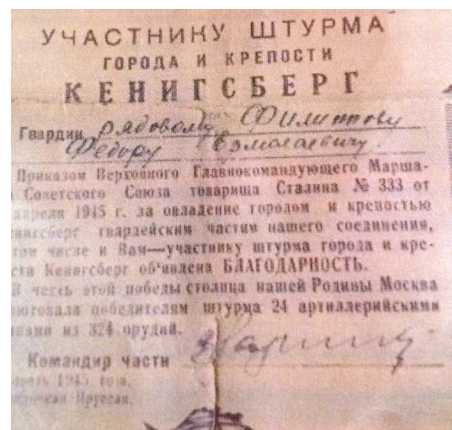 УЧАСТНИКУ ШТУРМА
ГОРОДА И КРЕПОСТИ
КЕНИГСБЕРГ
Гвардии рядовому Филиппову
Федору
Приказом Верховного Главнокомандующего Марша-
Советского Союза товарища Сталина № 333 от
апреля 1945 г. за овладение городом и крепостью
гвардейским частям нашего соединения,
том числе и Вам—участнику штурма города и кре-
Кенигсберг об'явлена БЛАГОДАРНОСТЬ.
В честь этой победы столица нашей Родины Москва
победителям штурма 24 артиллерийскими
из 324 орудий.
Командир части
1945 года,